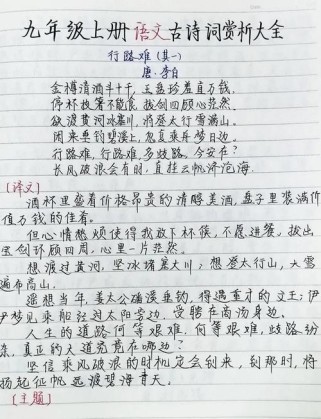 九年级上册语文古诗词赏析大全
行路难（其一）
唐·李白
金樽清酒斗十千，玉盘珍羞直万钱。
停杯投箸不能食，拔剑四顾心茫然。
欲渡黄河冰塞川，将登太行雪满山。
闲来垂钓碧溪上，忽复乘舟梦日边。
行路难，行路难，多歧路，今安在？
长风破浪会有时，直挂云帆济沧海。
[译文]
酒杯里盛着价格昂贵的清醇美酒，盘子里装满价
值万钱的佳肴。
但心情愁烦使得我放下杯筷，不愿进餐，拔出
宝剑环顾四周，心里一片茫然。
想渡过黄河，坚冰堵塞大川；想登太行山，大雪
遍布高山。
遥想当年，姜太公磻溪垂钓，得遇重才的文王；伊
尹梦见乘船经过太阳旁边，受聘在商汤身边。
人生的道路何等艰难，何等艰难，歧路纷
杂，真正的大道究竟在哪边？
坚信乘风破浪的时机定会到来，到那时，将
扬起征帆远渡碧海青天。
[主题]